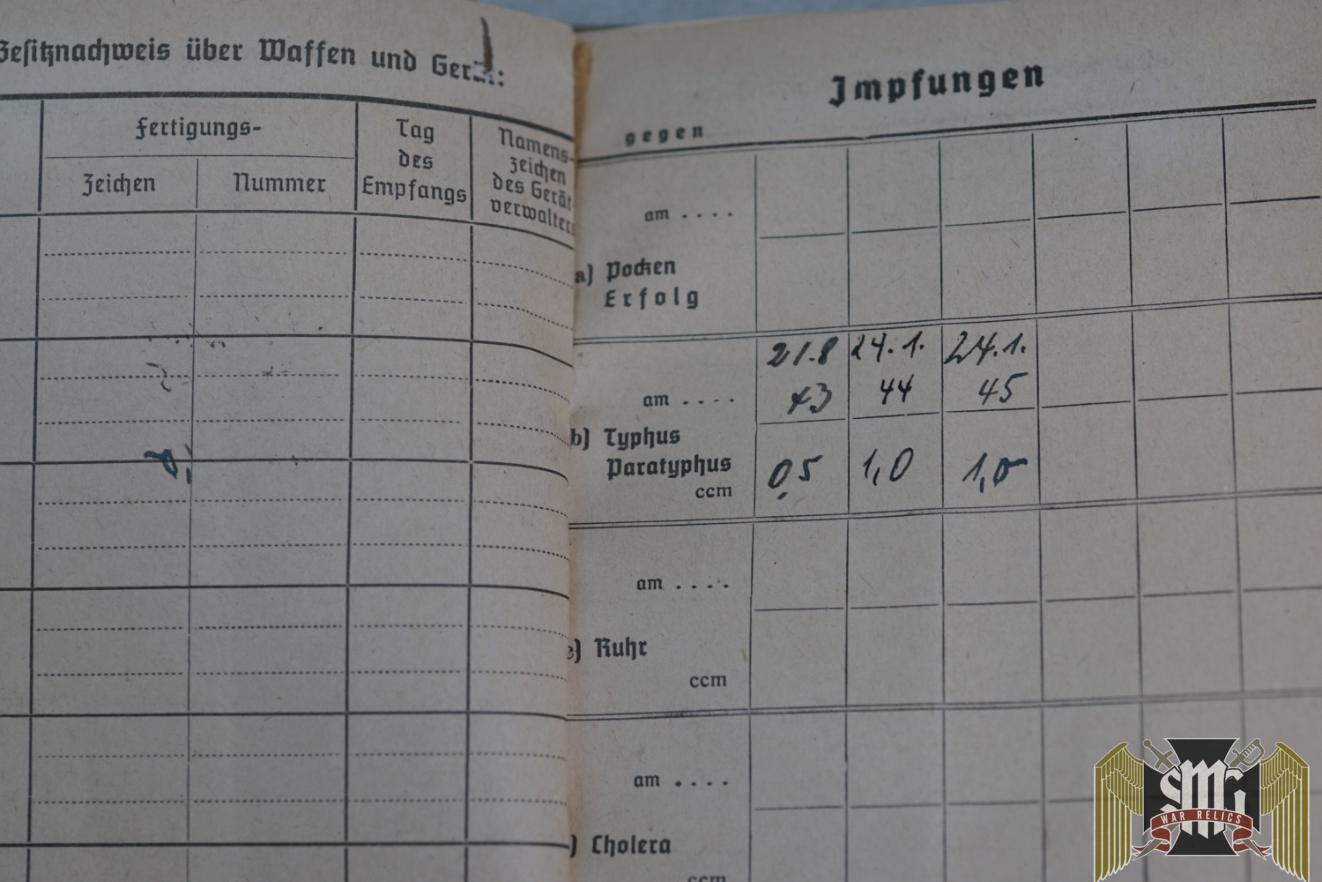 Besitznachweis über Waffen und Gerät:
Fertigungs-
Zeichen
Nummer
Tag
des
Empfangs
Namens-
zeichen
des Gerät-
verwalters
Impfungen
gegen
am . . . .
a) Pocken
Erfolg
21.8 24.1. 24.1.
am . . . . 43 44 45
b) Typhus
Paratyphus 0,5 1,0 1,0
ccm
am . . . .
c) Ruhr
ccm
am . . . .
) Cholera
ccm
SMG
WAR RELICS